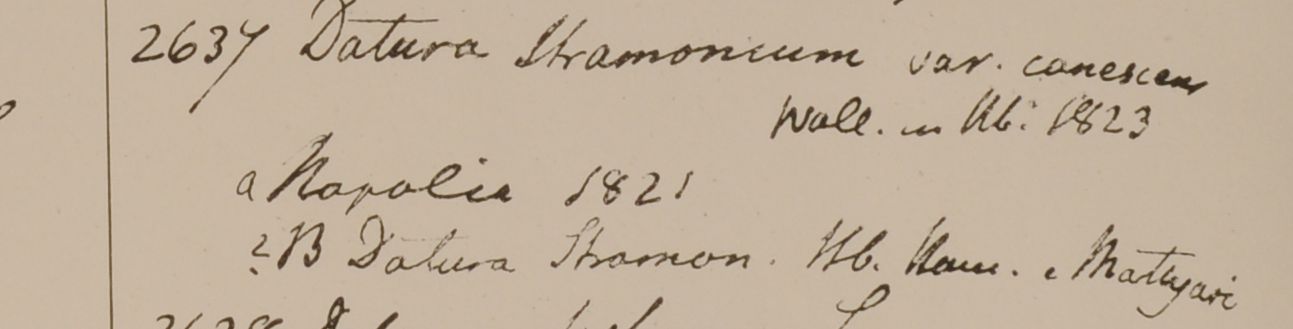 2637 Datura Stramonium var. canescens
Wall. in Hb: 1823
a Napalia 1821
2 B Datura Stramon. Hb. Ham. e Mattyari